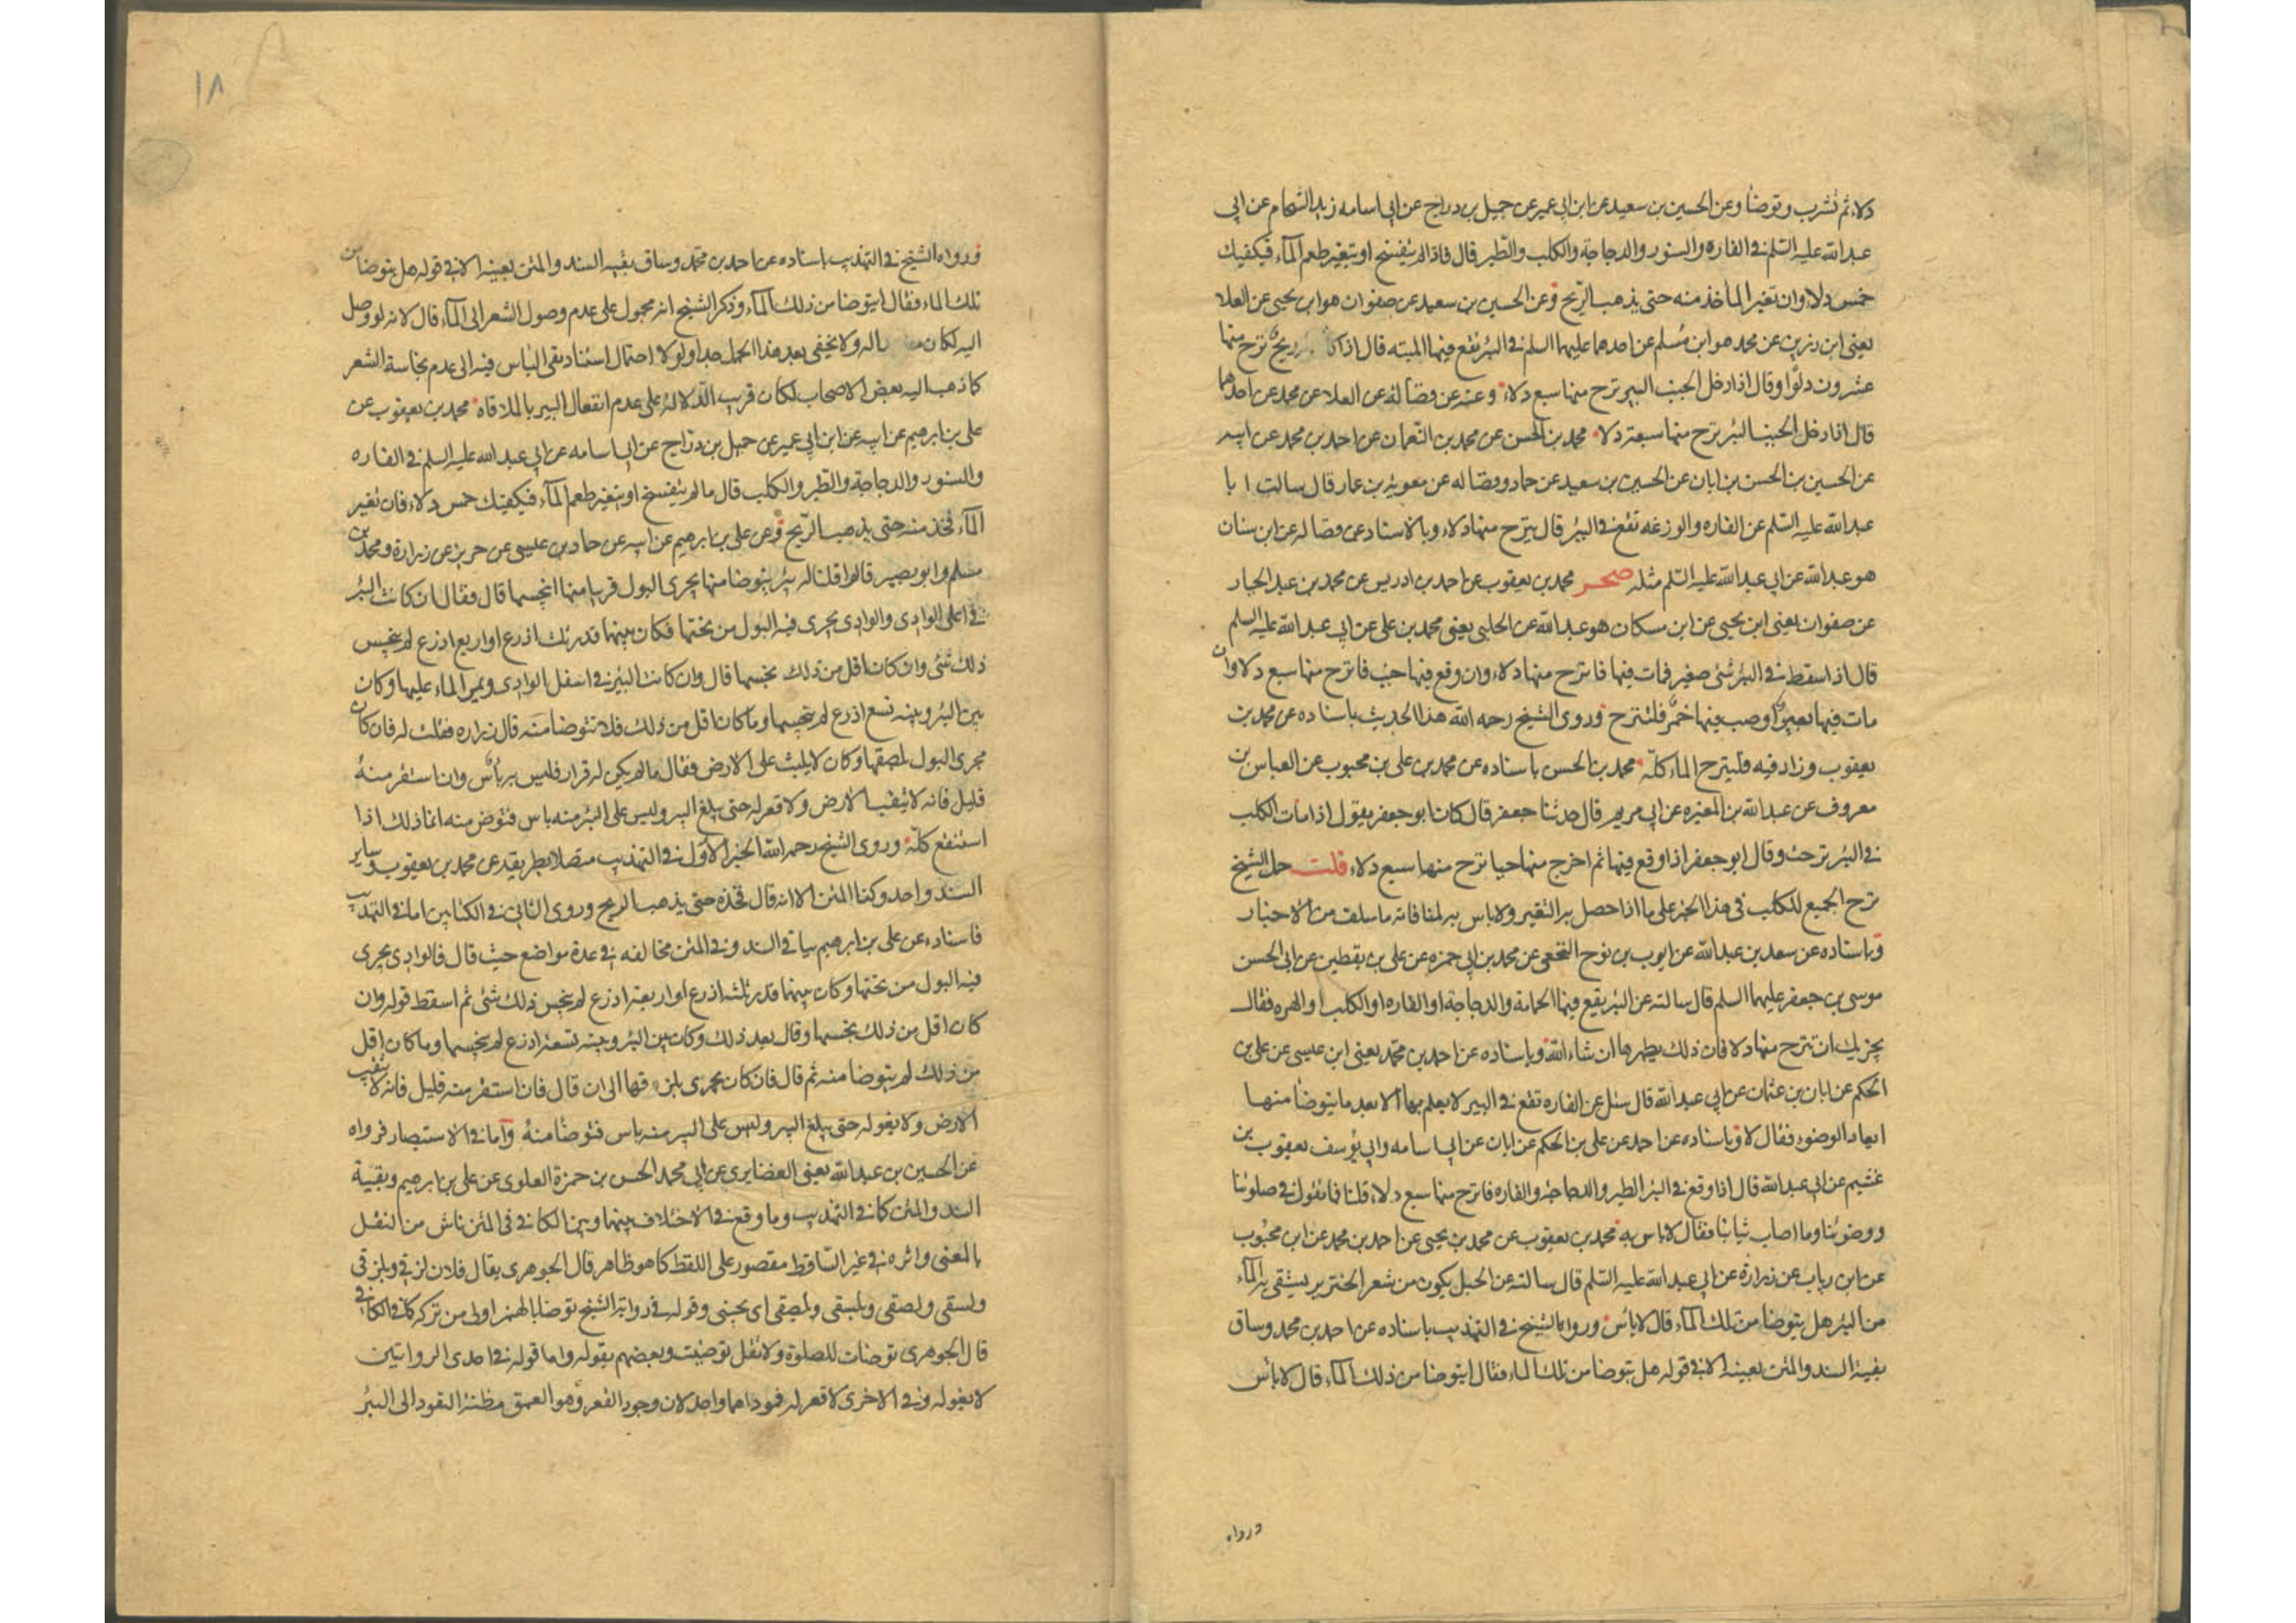 دلاء ثم تشرب وتوضأ وعن الحسين بن سعيد عن ابن ابي عمير عن جميل بن دراج عن ابي اسامه زيد الشحام عن ابي
عبد الله عليه السلم في الفاره والسنور والدجاجة والكلب والطير قال فاذا لم يتفسخ او يتغير طعم المآء فيكفيك
خمس دلاء وان تغير الماء خذ منه حتى يذهب الريح وعن الحسين بن سعيد عن صفوان هو ابن يحيى عن العلا
يعنى ابن رزين عن محمد هو ابن مسلم عن احدهما عليهما السلم في البئر تقع فيها الميته قال اذا كان ريح نزح منها
عشرون دلوا وقال اذا دخل الجنب البير نزح منها سبع دلاء وعنه عن فضالة عن العلا عن محمد عن احدهما
قال اذا دخل الجنب البئر نزح منها سبعة دلاء محمد بن الحسن عن محمد بن النعمان عن احمد بن محمد عن ابيه
عن الحسين بن الحسن بن ابان عن الحسين بن سعيد عن حماد وفضاله عن معويه بن عمار قال سالت ابا
عبد الله عليه السلم عن الفاره والوزغه تقع في البئر قال ينزح منها دلاء وبالاسناد عن فضاله عن ابن سنان
هو عبد الله عن ابي عبد الله عليه السلم مثله صحر محمد بن يعقوب عن احمد بن ادريس عن محمد بن عبد الجبار
عن صفوان يعنى ابن يحيى عن ابن مسكان هو عبد الله عن الحلبى يعنى محمد بن على عن ابي عبد الله عليه السلم
قال اذا سقط في البئر شئ صغير فمات فيها فانزح منها دلاء وان وقع فيها جنب فانزح منها سبع دلاء وان
مات فيها بعير او صب فيها خمر فلتنزح وروى الشيخ رحمه الله هذا الحديث باسناده عن محمد بن
يعقوب وزاد فيه فلينزح الماء كله محمد بن الحسن باسناده عن محمد بن على بن محبوب عن العباس بن
معروف عن عبد الله بن المغيره عن ابي مريم قال حدثنا جعفر قال كان ابو جعفر يقول اذا مات الكلب
في البئر نزحت وقال ابو جعفر اذا وقع فيها ثم اخرج منها حيا نزح منها سبع دلاء قلت حمل الشيخ
نزح الجميع للكلب في هذا الخبر على ما اذا حصل به التغير ولا باس به لمنافاته ما سلف من الاخبار
وباسناده عن سعد بن عبد الله عن ايوب بن نوح النخعى عن محمد بن ابي حمزه عن على بن يقطين عن ابي الحسن
موسى بن جعفر عليهما السلم قال سالته عن البئر يقع فيها الحمامة والدجاجة او الفاره او الكلب او الهره فقال
يجزيك ان تنزح منها دلاء فان ذلك يطهرها ان شاء الله وباسناده عن احمد بن محمد يعنى ابن عيسى عن على بن
الحكم عن ابان بن عثمان عن ابي عبد الله قال سئل عن الفاره تقع في البير لا يعلم بها الا بعد ما يتوضأ منها
ايعاد الوضوء فقال لا وباسناده عن احمد عن على بن الحكم عن ابان عن ابي اسامه وابي يوسف يعقوب بن
عثيم عن ابي عبد الله قال اذا وقع في البئر الطير والدجاجة والفاره فانزح منها سبع دلاء قلنا فما تقول في صلوتنا
ووضوئنا وما اصاب ثيابنا فقال لا باس به محمد بن يعقوب عن محمد بن يحيى عن احمد بن محمد عن ابن محبوب
عن ابن رياب عن زرارة عن ابي عبد الله عليه السلم قال سالته عن الحبل يكون من شعر الخنزير يستقى به المآء
من البئر هل يتوضا من تلك المآء قال لا باس ورواه الشيخ في التهذيب باسناده عن احمد بن محمد وساق
بقية السند والمتن بعينه الا في قوله هل يتوضا من تلك الماء فقال ايتوضا من ذلك المآء قال لا باس
ورواه
١٨
ورواه الشيخ في التهذيب باسناده عن احمد بن محمد وساق بقيه السند والمتن بعينه الا في قوله هل يتوضا من
تلك الماء فقال ايتوضا من ذلك المآء وذكر الشيخ انه محمول على عدم وصول الشعر الى المآء قال لانه لو وصل
اليه لكان له ولا يخفى بعد هذا الحمل جدا ولولا احتمال استناد نفى الباس فيه الى عدم نجاسة الشعر
كما ذهب اليه بعض الاصحاب لكان قريب الدلالة على عدم انفعال البير بالملاقاه محمد بن يعقوب عن
على بن ابرهيم عن ابيه عن ابن ابي عمير عن جميل بن دراج عن ابي اسامه عن ابي عبد الله عليه السلم في الفاره
والسنور والدجاجة والطير والكلب قال ما لم يتفسخ او يتغير طعم المآء فيكفيك خمس دلاء فان تغير
المآء فخذ منه حتى يذهب الريح وعن على بن ابرهيم عن ابيه عن حماد بن عيسى عن حريز عن زرارة ومحمد بن
مسلم وابو بصير قالوا قلنا له بئر يتوضا منها يجرى البول قريبا منها اينجسها قال فقال ان كانت البئر
في اعلى الوادى والوادى يجرى فيه البول من تحتها فكان بينهما قدر ثلث اذرع او اربع اذرع لم ينجس
ذلك شئ وان كان اقل من ذلك نجسها قال وان كانت البئر في اسفل الوادى ويمر الماء عليها وكان
بين البئر وبينه تسع اذرع لم ينجسها وما كان اقل من ذلك فلا تتوضا منه قال زراره فقلت له فان كان
مجرى البول بلصقها وكان لا يلبث على الارض فقال ما لم يكن له قرار فليس به باس وان استقر منه
قليل فانه لا يثقب الارض ولا قعر له حتى يبلغ البير وليس على البئر منه باس فتوض منه انما ذلك اذا
استنقع كله وروى الشيخ رحمه الله الخبر الاول في التهذيب متصلا بطريقه عن محمد بن يعقوب وساير
السند واحد وكذا المتن الا انه قال فخذه حتى يذهب الريح وروى الثانى في الكتابين اما في التهذيب
فاسناده عن على بن ابرهيم بباقي السند وفي المتن مخالفه في عدة مواضع حيث قال فالوادى يجرى
فيه البول من تحتها وكان بينهما قدر ثلثه اذرع او اربعة اذرع لم ينجس ذلك شئ ثم اسقط قوله وان
كان اقل من ذلك نجسها وقال بعد ذلك وكان بين البئر وبينه تسعة اذرع لم ينجسها وما كان اقل
من ذلك لم يتوضا منه ثم قال فان كان يجرى بلزقها الى ان قال فان استقر منه قليل فانه لا يثقب
الارض ولا يغوله حتى يبلغ البير وليس على البير منه باس فتوضا منه واما في الاستبصار فرواه
عن الحسين بن عبد الله يعنى الغضايرى عن ابي محمد الحسن بن حمزة العلوى عن على بن ابرهيم وبقية
السند والمتن كما في التهذيب وما وقع في الاختلاف بينهما وبين الكافي في المتن ناش من النقل
بالمعنى واثره في غير الساقط مقصور على اللفظ كما هو ظاهر قال الجوهرى يقال فلان لزقى وبلزقى
ولسقى ولصقى وبلسقى وبلصقى اى بجنبى وقوله في رواية الشيخ توضا بالهمز اولى من تركه كما في الكافي
قال الجوهرى توضات للصلوة ولا تقل توضيت وبعضهم يقوله واما قوله في احدى الروايتين
لا يغوله وفي الاخرى لا قعر له فمؤداهما واحد لان وجود القعر وهو العمق مظنة النفوذ الى البئر